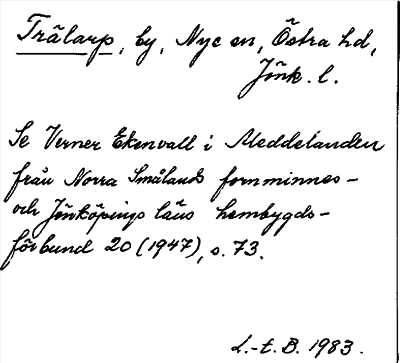 Trälarp, by, Nye sn, Östra hd,
Jönk. l.
Se Verner Ekenvall i Meddelanden
från Norra Smålands fornminnes-
och Jönköpings läns hembygds-
förbund 20 (1947), s. 73.
L.-t. B. 1983.